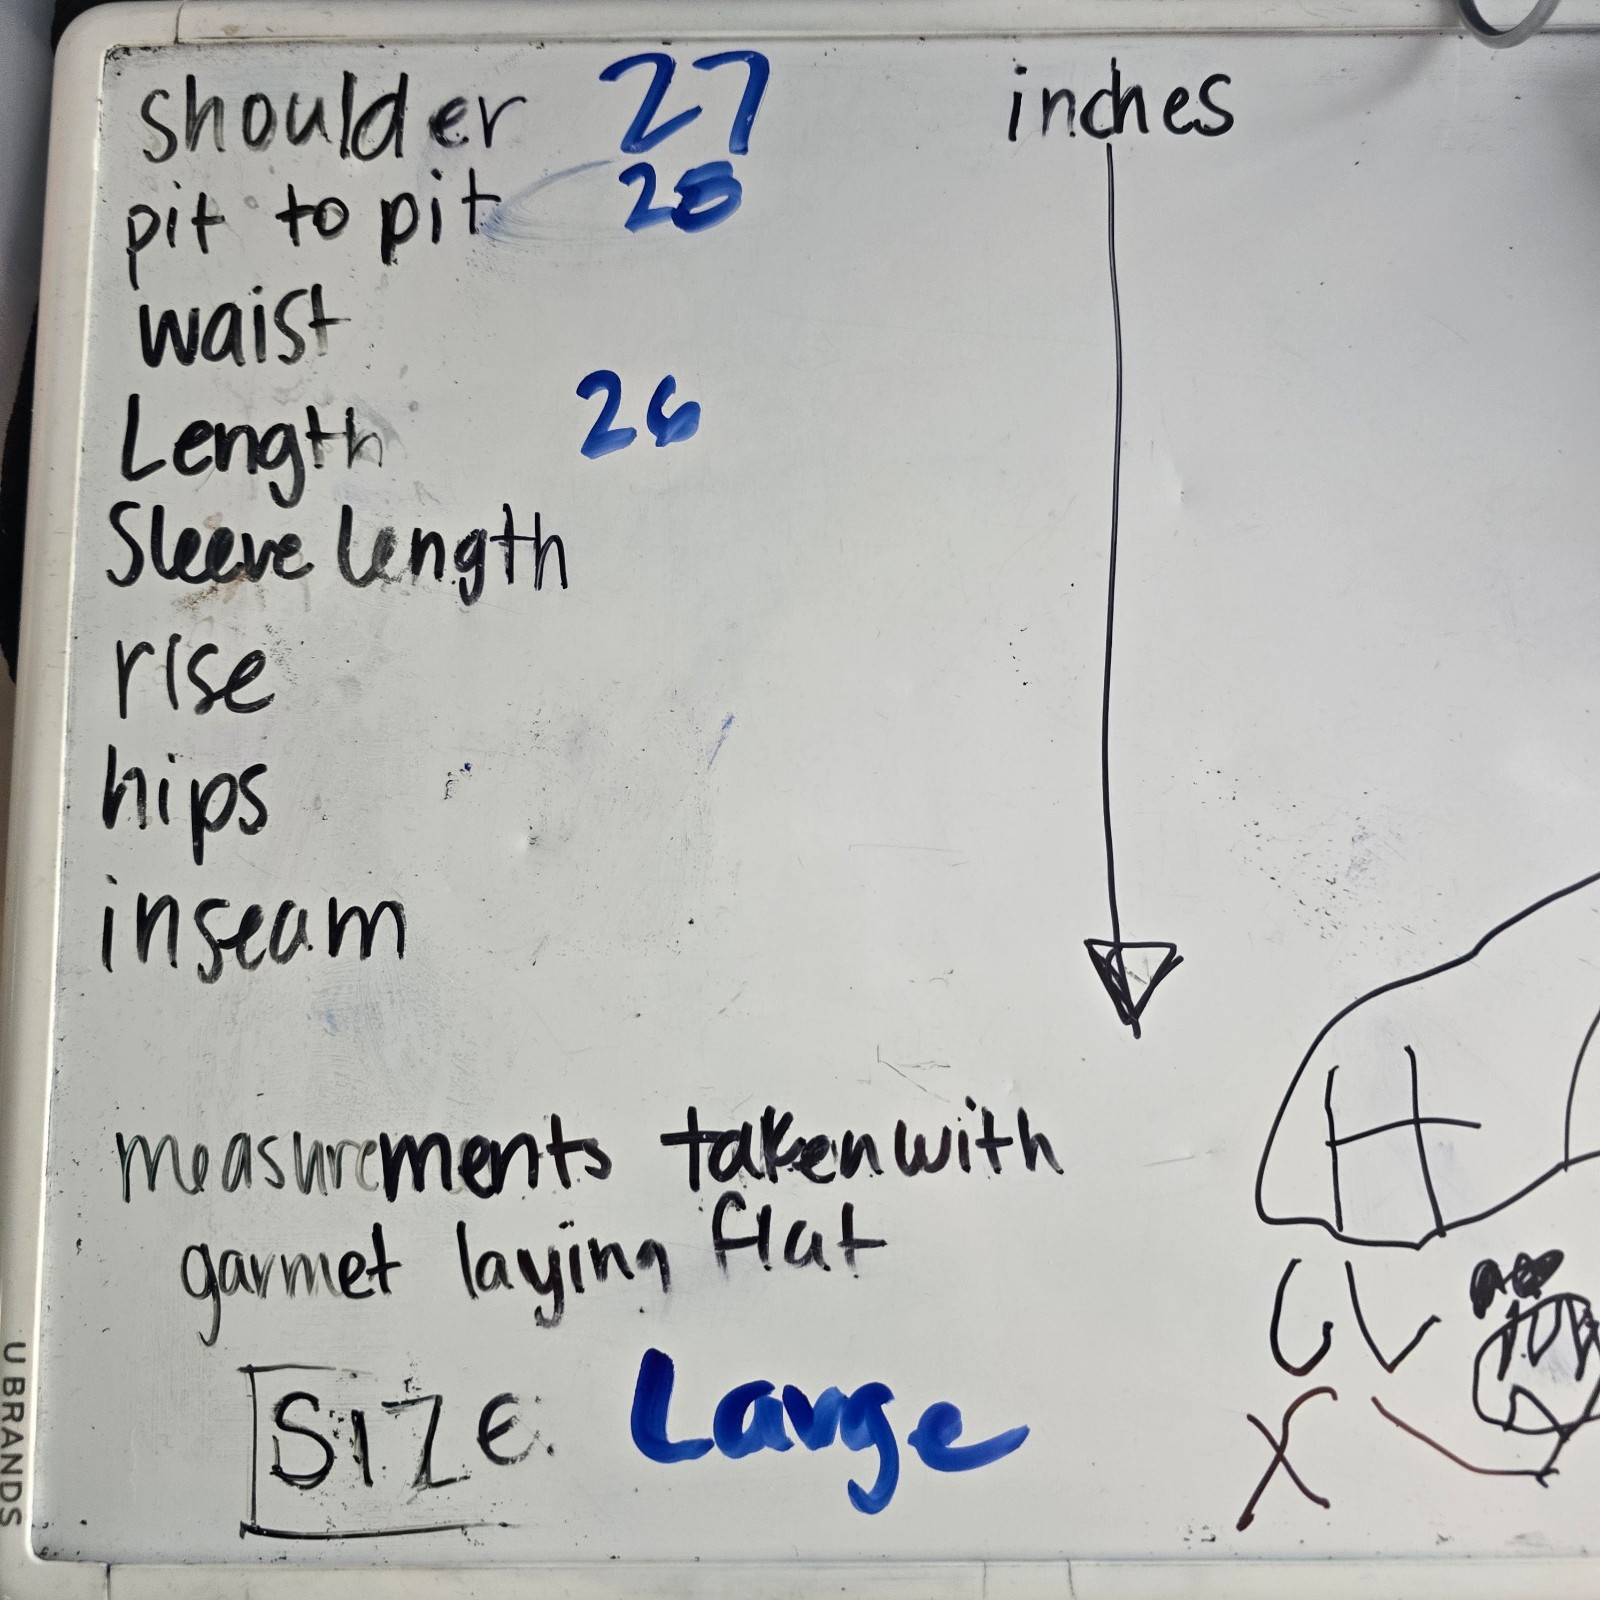 shoulder 27 inches
pit to pit
waist
Length 26
Sleeve length
rise
hips
inseam
measurements taken with
garmet laying flat
SIZE Large
U BRANDS
H